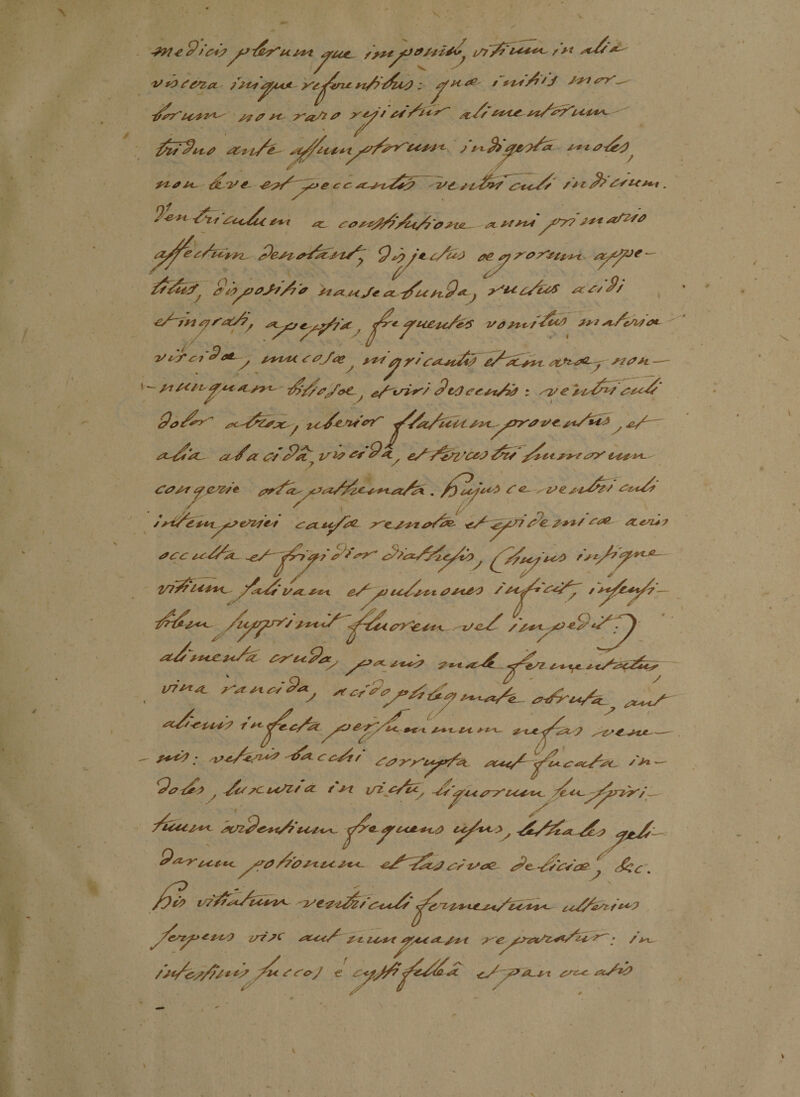 medicis plerumque imponit, vitium in alia
viscera inique refundentibus: quae initiis mor-
borum non raro rejicitur alimentorum
triduo ante assumptorum indigesta moles,
non leve est peccantis ventriculi indicium.
Ventriculum a constitutione animi primario
affectum denotant, dejectus aegrorum appe-
titus, dispositio nauseabunda, ructus acidi
et ingrati, apepsia, frequentes vomitus materiae
viscidae, mucosae, nigricantis etiam atrae, non-
nunquam biliosae, et viri descentis: ventriculi
dolor atrox, ulterior flatuum proventus, et
alia acida, viscida, et fervens tri humorum
congerie orta pathemata. Hujus ce ventriculi
intemperiei causae remotae et epidemicae aeris
occulta et frigidior diathesis, (hujus insigne
vitium salivam et pulmones inficit, insensi-
bilem supprimit fluorem vel impedit:)
alimenta cruda, panis male fermentatus
vina rancida, acidophilaq mate obruta, aut
alienis infecta perfumum nefas vene-
nis: vetenis bacchi corrupta aut fucata in-
doles, luxuria in victu, liquorum su spiri-
tuum ardentium frequens usus, lethales geli-
darum potionum et lascivae deliciae, &c.
His vitiatum ventriculi fermentum ulterius
serpens vix aut nunquam reparatur: in
intestinis succos e cysti fellea et pancreatis